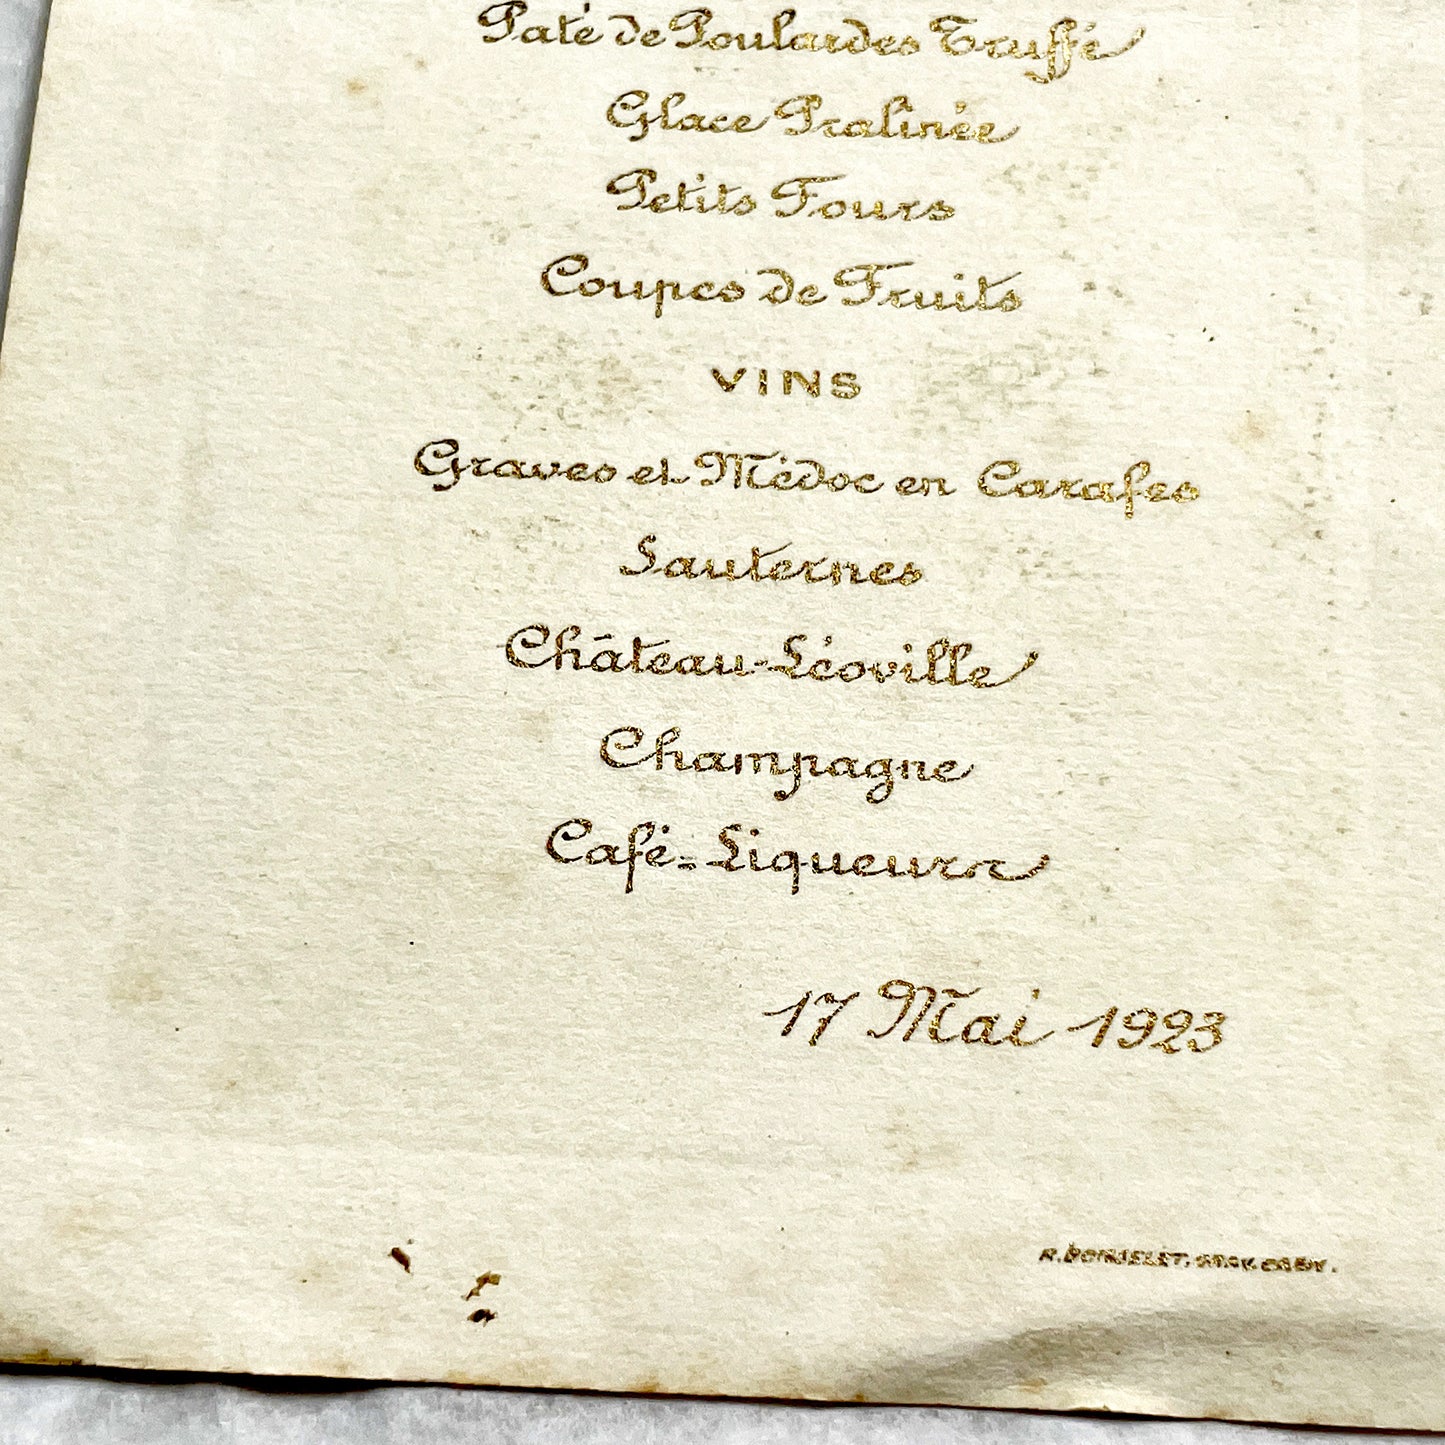 Paté de Poulardes Truffé
Glace Pralinée
Petits Fours
Coupes de Fruits
VINS
Graves et Médoc en Carafes
Sauternes
Château-Léoville
Champagne
Café=Liqueurs
17 Mai 1923